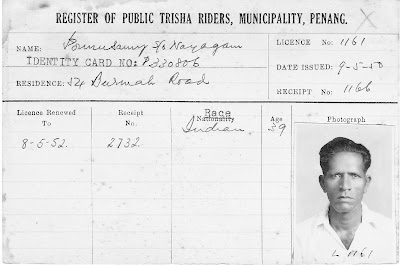 REGISTER OF PUBLIC TRISHA RIDERS, MUNICIPALITY, PENANG.
NAME: Ponusamy S/o Nayagam
LICENCE No: 1161
IDENTITY CARD NO: P330806
DATE ISSUED: 9-5-50
RESIDENCE: 54 Burmah Road
RECEIPT No: 1166
Licence Renewed To
Receipt No.
Race
Nationality
Age
Photograph
8-5-52.
2732
Indian
39
L 1161